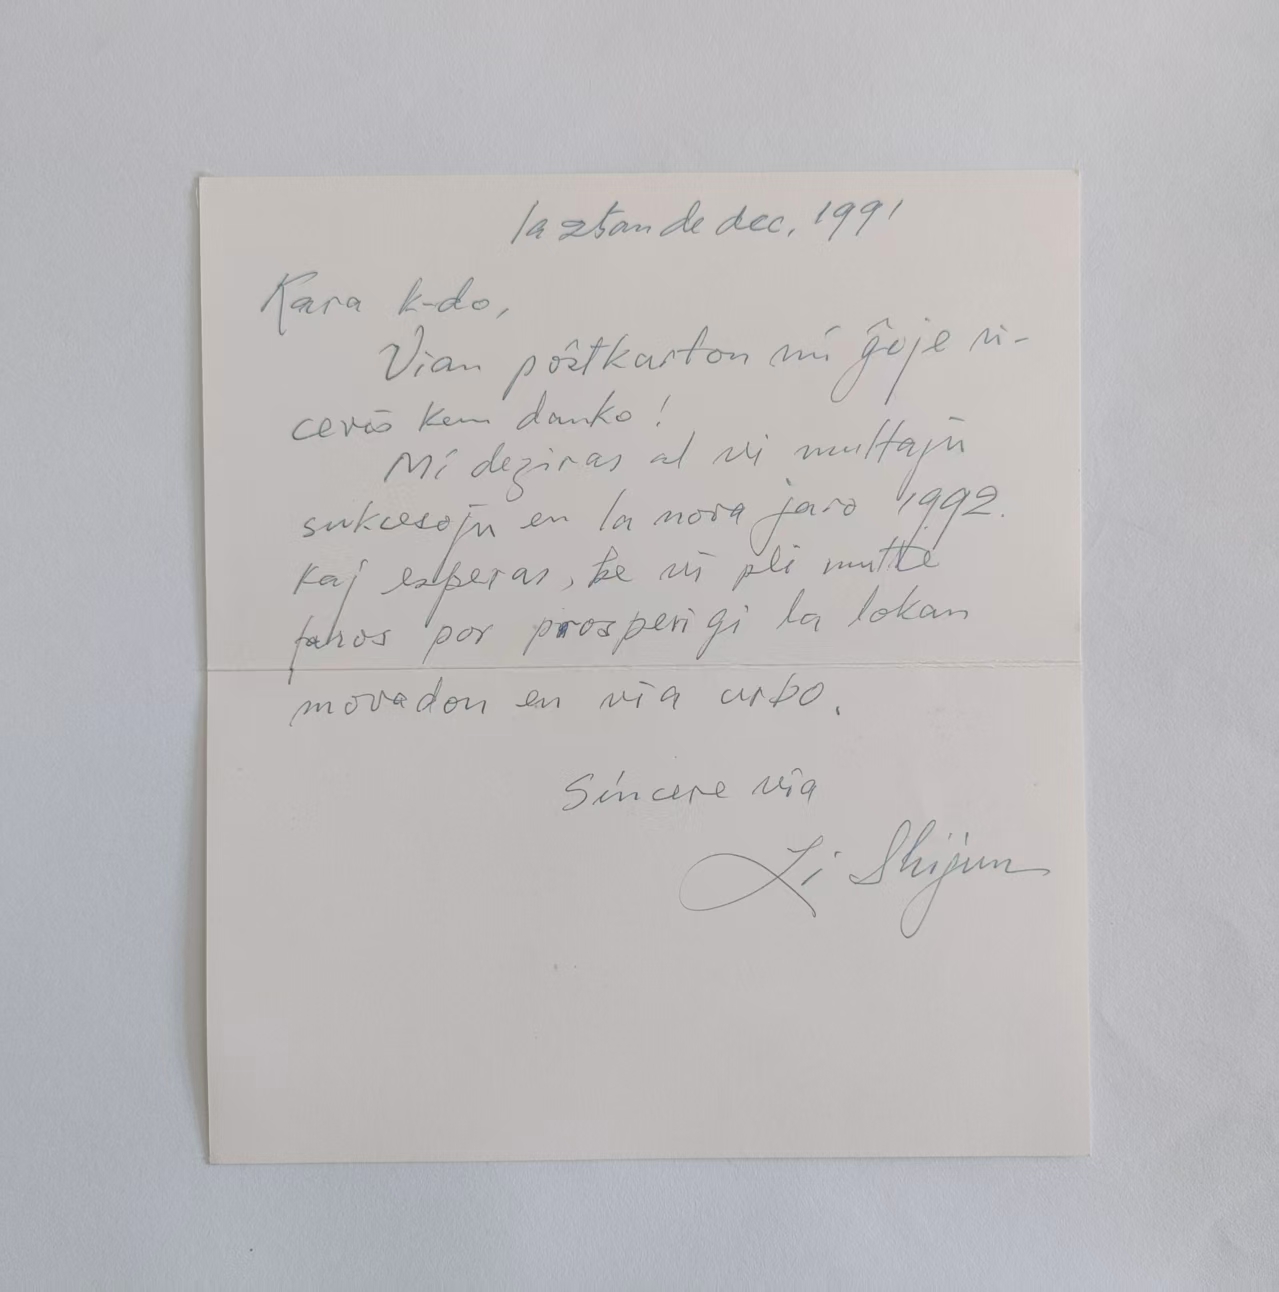 la 25an de dec. 1991
Kara k-do,
Vian poŝtkarton mi ĝoje ri-
cevis kun danko!
Mi deziras al vi multajn
sukcesojn en la nova jaro 1992.
kaj esperas, ke vi pli multe
faros por prosperigi la lokan
movadon en via urbo.
Sincere via
Li Shijun